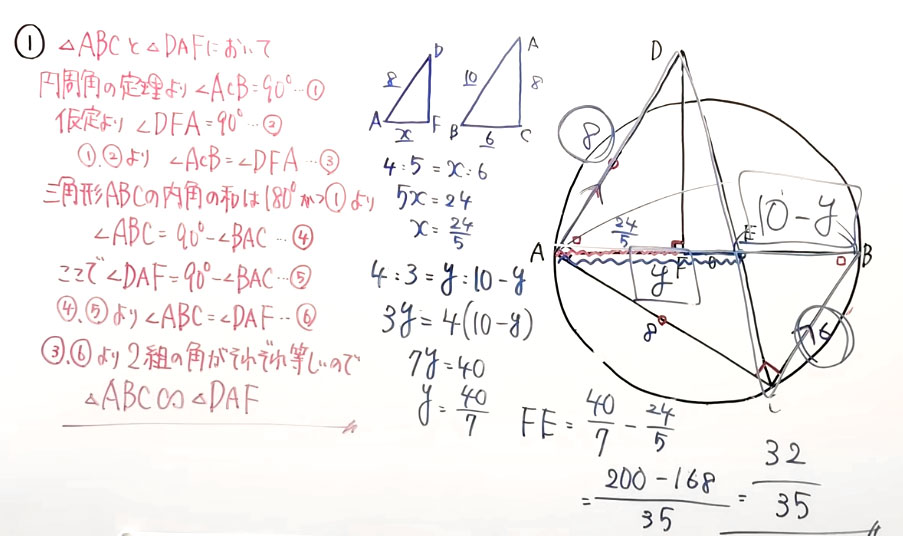 ① △ABCと△DAFにおいて
円周角の定理より∠ACB=90°…①
仮定より∠DFA=90°…②
①,②より ∠ACB=∠DFA…③
三角形ABCの内角の和は180°かつ①より
∠ABC=90°-∠BAC…④
ここで∠DAF=90°-∠BAC…⑤
④,⑤より∠ABC=∠DAF…⑥
③,⑥より2組の角がそれぞれ等しいので
△ABC∽△DAF
D
8
A
x
F
A
10
8
B
6
C
4:5=x:6
5x=24
x=24/5
4:3=y:10-y
3y=4(10-y)
7y=40
y=40/7
FE=40/7-24/5
=200-168/35
=32/35
D
8
10-y
24/5
E
A
F
B
y
8
6
C